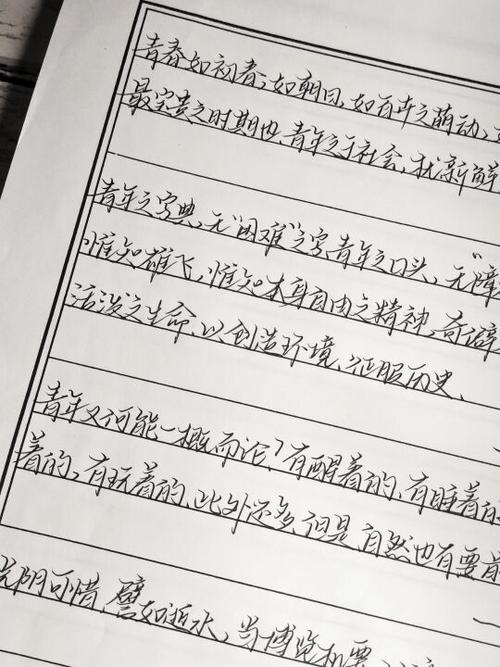 青春如初春，如朝日，如百卉之萌动，
最宝贵之时期也.青年之于社会，犹新鲜
青年之字典，无"困难"之字，青年之口头，无"障
惟知雄飞，惟知本身自由之精神，奇僻
活泼之生命，以创造环境，征服历史、
青年又何能一概而论？有醒着的，有睡着的
着的，有玩着的，此外还多.但是，自然也有要前
光阴可惜，譬如逝水，当博览机要，